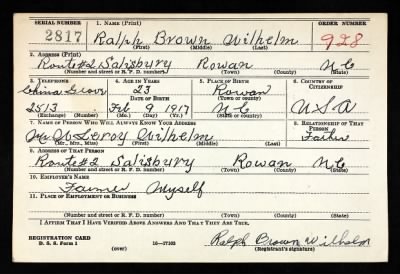 SERIAL NUMBER 1. NAME (Print) ORDER NUMBER
2817 Ralph Brown Wilhelm 928
(First) (Middle) (Last)
2. ADDRESS (Print)
Route #2 Salisbury Rowan N C
(Number and street or R. F. D. number) (Town) (County) (State)
3. TELEPHONE 4. AGE IN YEARS 5. PLACE OF BIRTH 6. COUNTRY OF CITIZENSHIP
China Grove 23 Rowan
DATE OF BIRTH (Town or county)
2513 Feb 9 1917 N C U S A
(Exchange) (Number) (Mo.) (Day) (Yr.) (State or country)
7. NAME OF PERSON WHO WILL ALWAYS KNOW YOUR ADDRESS 8. RELATIONSHIP OF THAT PERSON
Mr. Leroy Wilhelm Father
(Mr., Mrs., Miss) (First) (Middle) (Last)
9. ADDRESS OF THAT PERSON
Route #2 Salisbury Rowan N C
(Number and street or R. F. D. number) (Town) (County) (State)
10. EMPLOYER'S NAME
Farmer Myself
11. PLACE OF EMPLOYMENT OR BUSINESS
(Number and street or R. F. D. number) (Town) (County) (State)
I AFFIRM THAT I HAVE VERIFIED ABOVE ANSWERS AND THAT THEY ARE TRUE.
REGISTRATION CARD
D. S. S. Form 1 (over) 16—17105 Ralph Brown Wilhelm
(Registrant's signature)